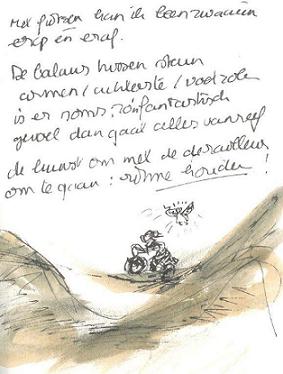 met fietsen kan ik been zwaaien
erop én eraf.
De balans tussen steun
armen / achterste / voetzolen
is er soms: zo'n fantastisch
gevoel dan gaat alles vanzelf
de kunst om met de derailleur
om te gaan: ritme houden !